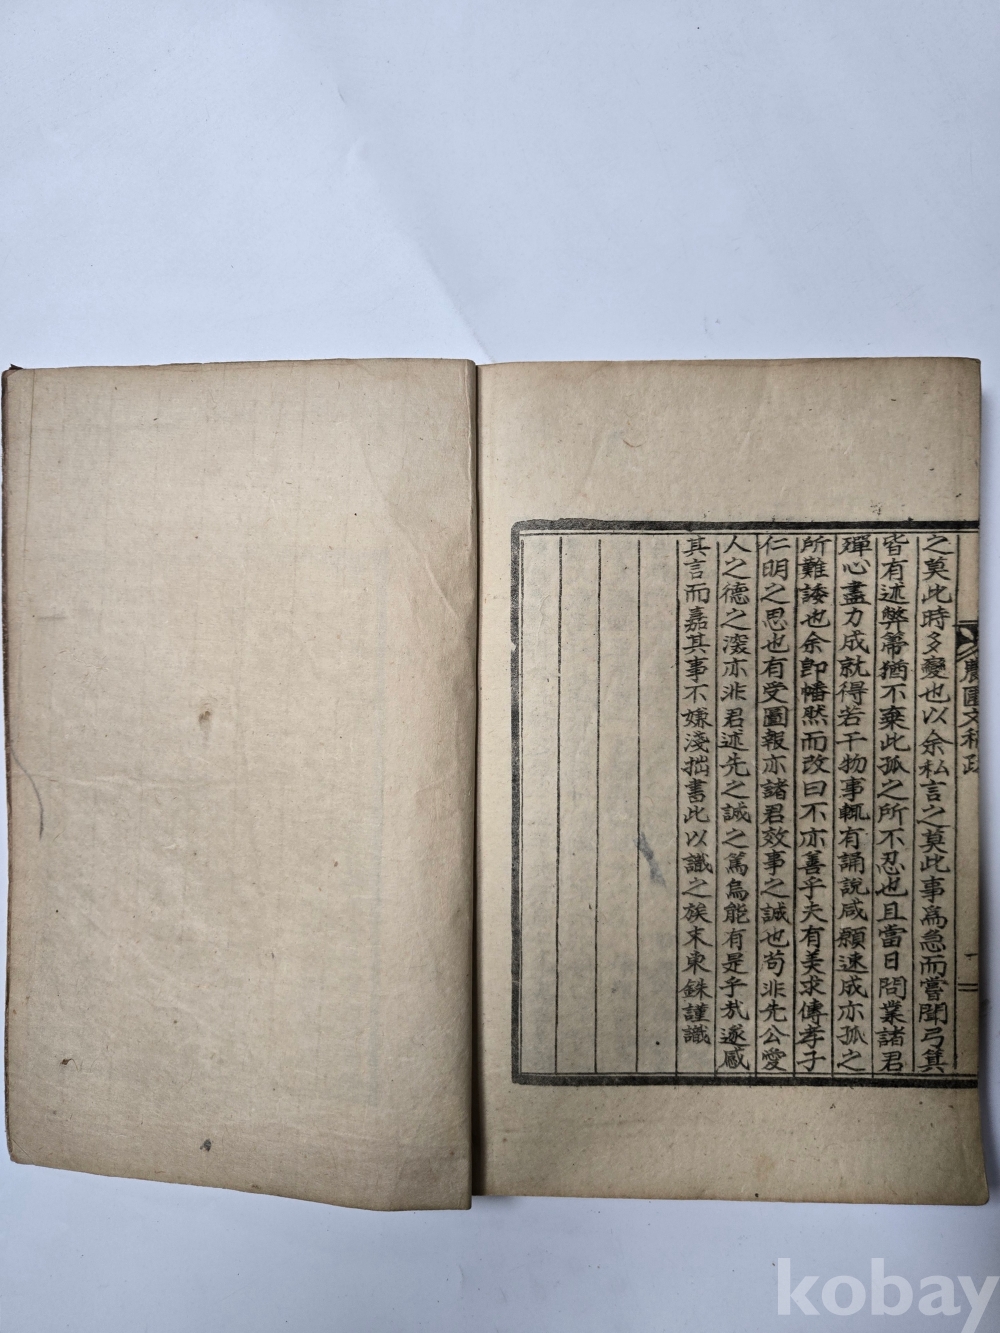 農圃文稿跋
一
之莫此時多變也以余私言之莫此事爲急而嘗聞弓箕
皆有述弊箒猶不棄此孤之所不忍也且當日問業諸君
殫心盡力成就得若干物事輒有誦說咸願速成亦孤之
所難諉也余卽幡然而改曰不亦善乎夫有美求傳孝子
仁明之思也有受圖報亦諸君效事之誠也苟非先公愛
人之德之深亦非君述先之誠之篤烏能有是乎哉遂感
其言而嘉其事不嫌淺拙書此以識之族末東銖謹識
kobay